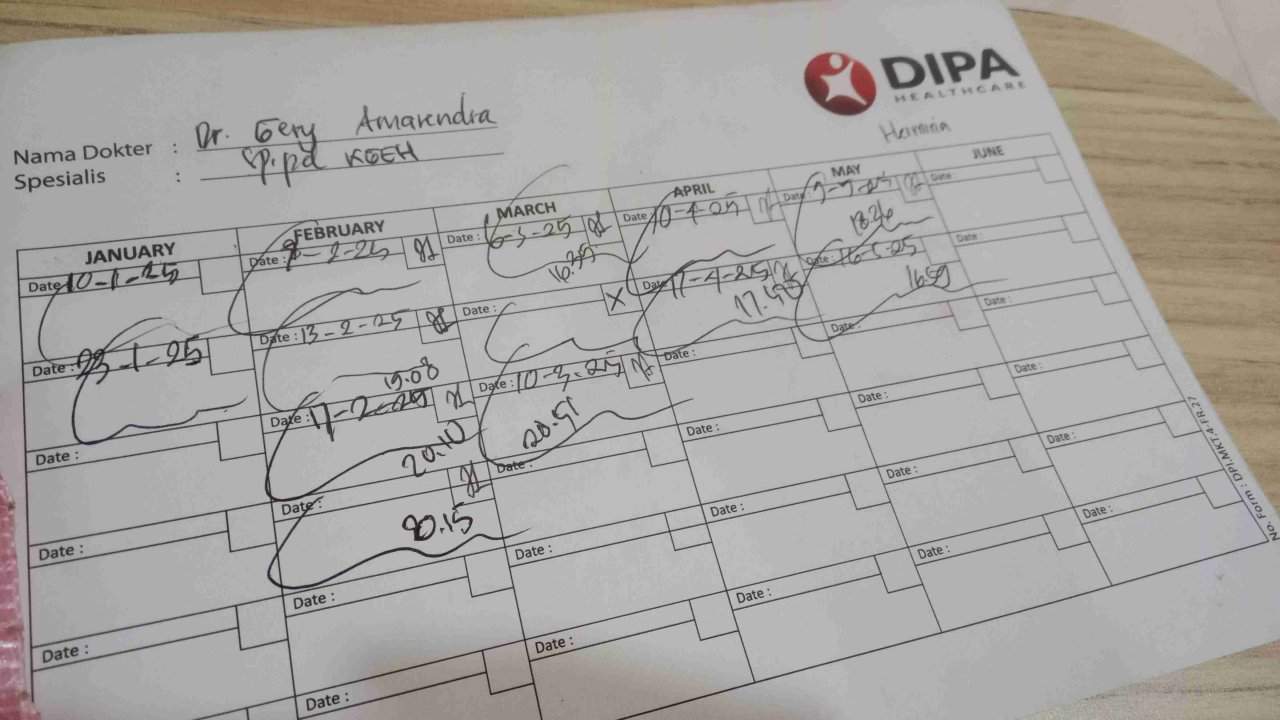 DIPA
HEALTHCARE
Nama Dokter : Dr. Gery Amarendra
Spesialis : Sp.pd KGEH
JANUARY
Date : 10-1-25
Date : 23-1-25
Date :
Date :
Date :
FEBRUARY
Date : 7-2-25
Date : 13-2-25
19.08
Date : 17-2-25
20.10
Date :
20.15
Date :
Date :
MARCH
Date : 6-3-25
16.35
Date : X
Date : 10-3-25
20.51
Date :
Date :
Date :
APRIL
Date : 10-4-25
Date : 17-4-25
Date :
Date :
Date :
Date :
MAY
Date :
18.26
16-5-25
16.59
Date :
Date :
Date :
Date :
JUNE
Date :
Date :
Date :
Date :
Date :
Date :
No. Form : DPI.MKT.4-FR.27